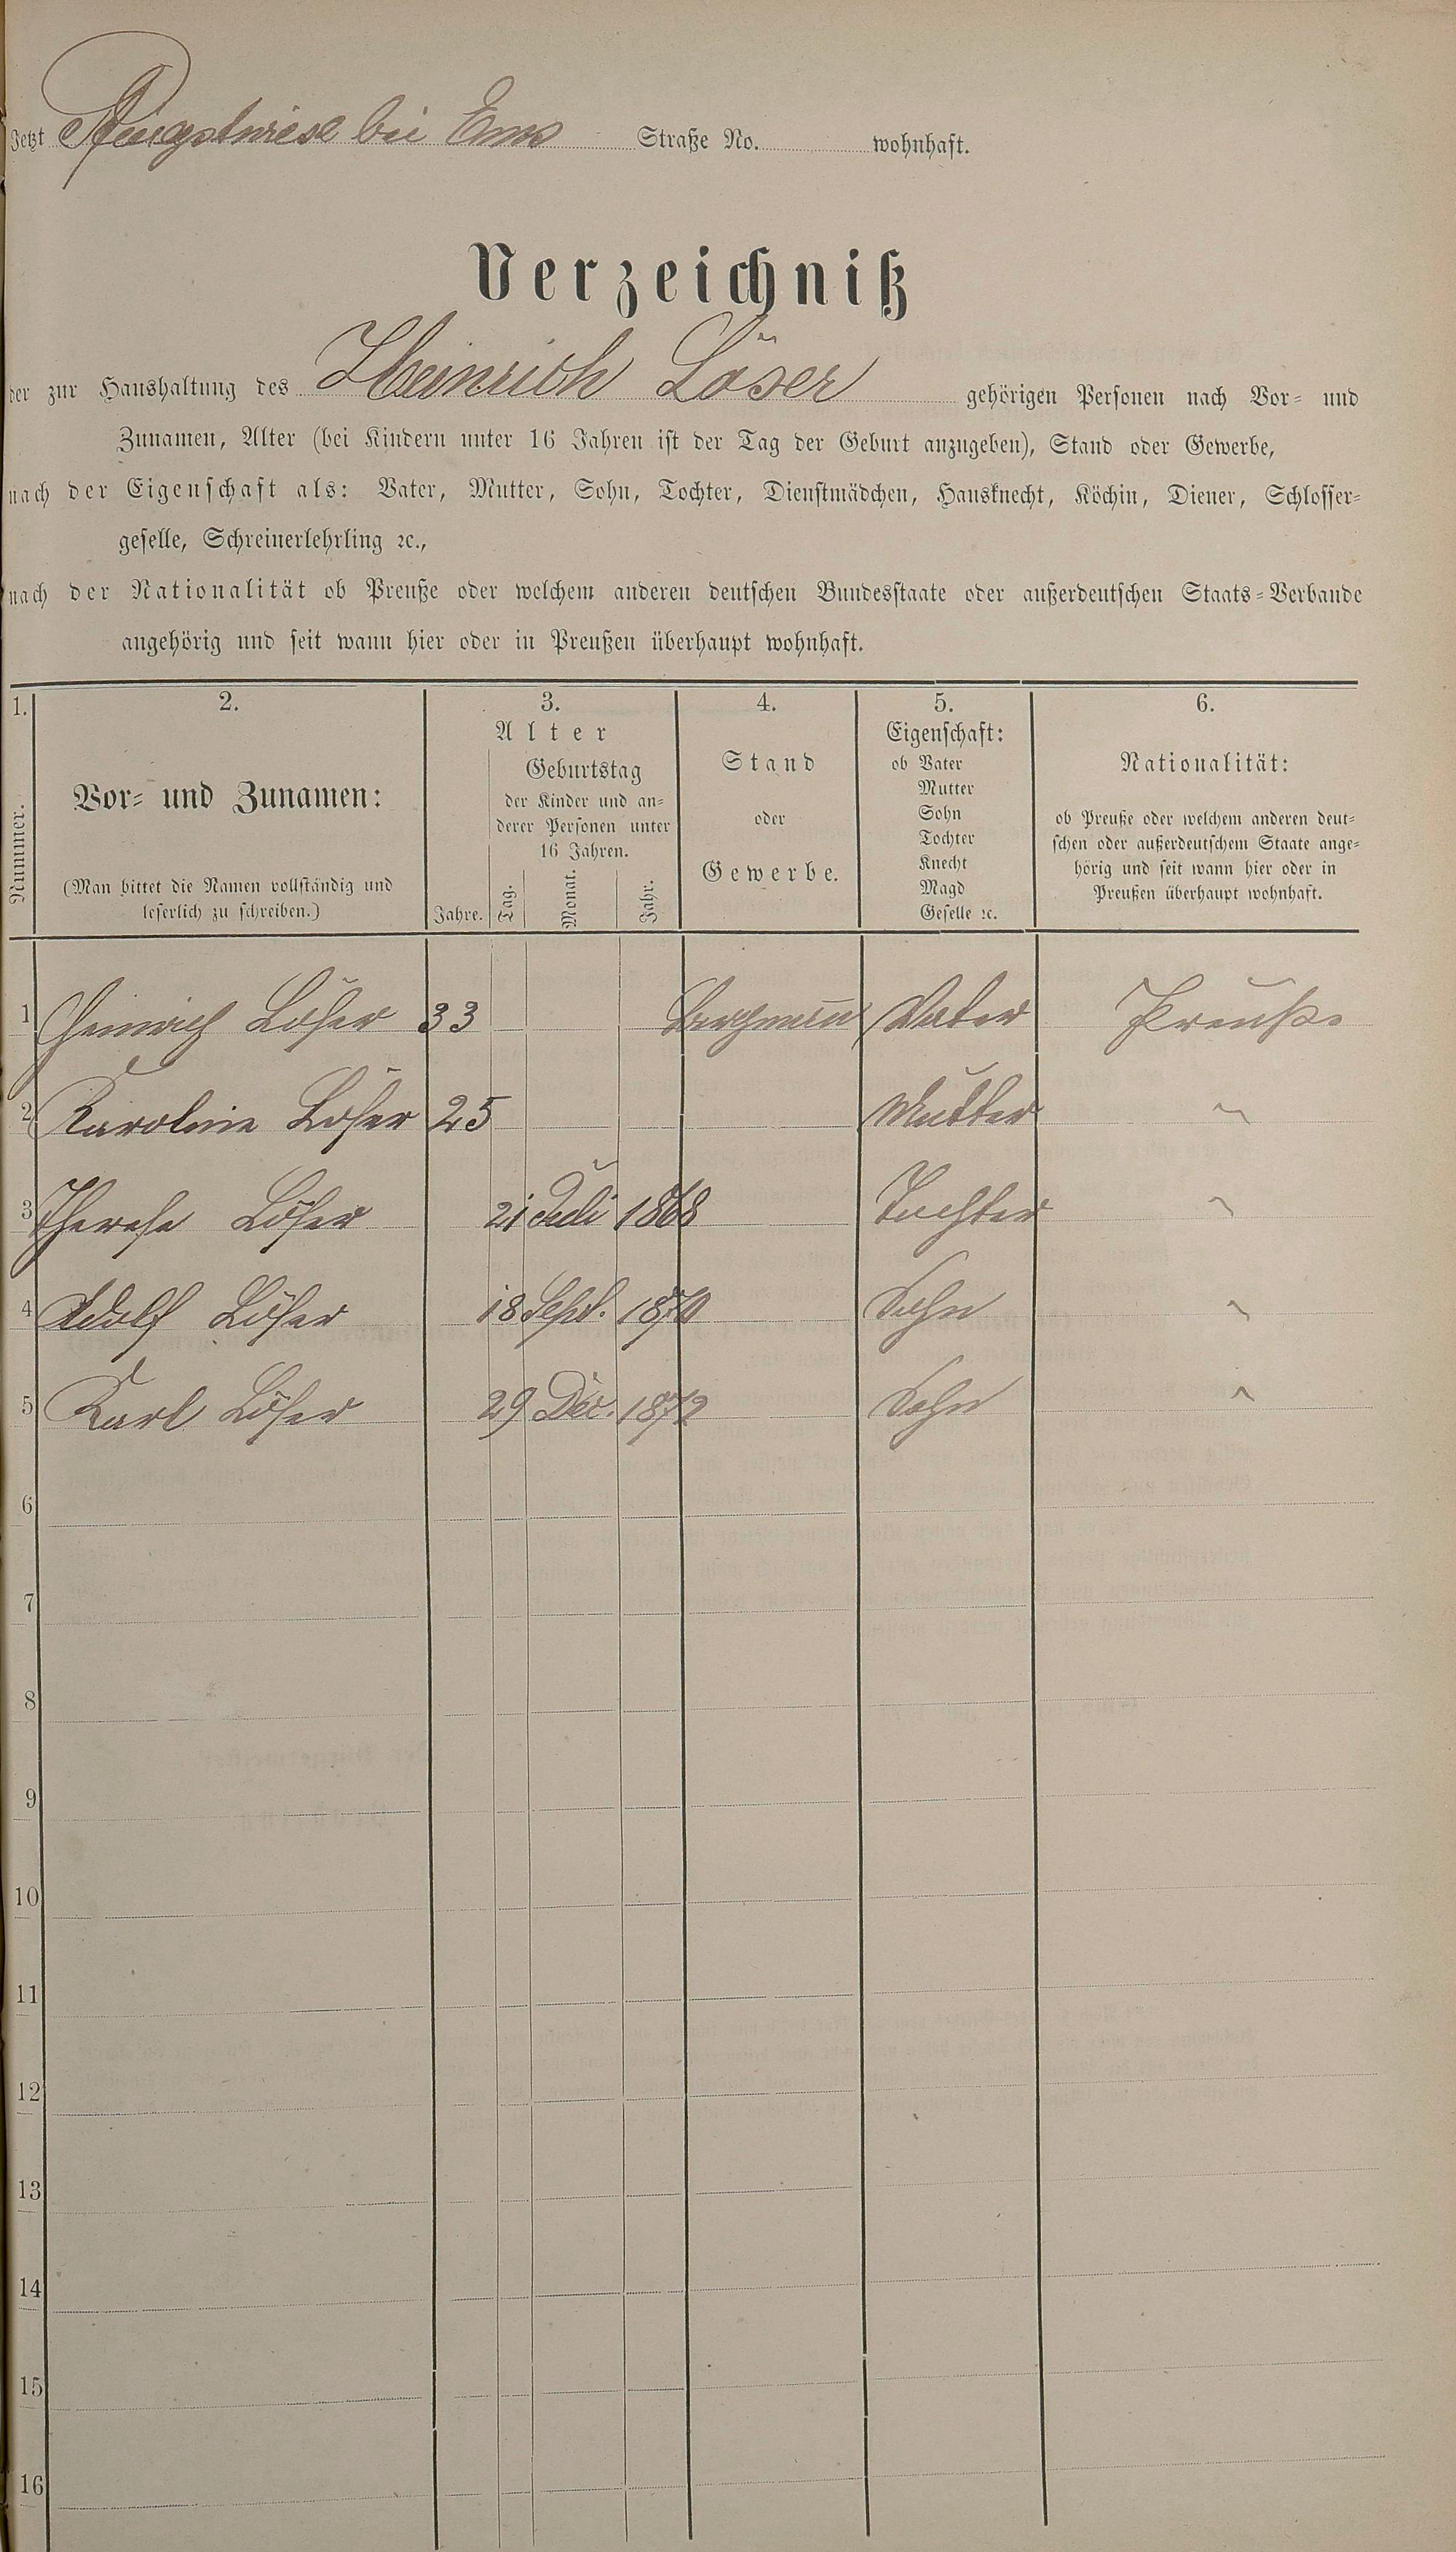 Jetzt Pfingstwiese bei Ems Straße No. wohnhaft.
Verzeichniß
der zur Haushaltung des Heinrich Löser gehörigen Personen nach Vor- und
Zunamen, Alter (bei Kindern unter 16 Jahren ist der Tag der Geburt anzugeben), Stand oder Gewerbe,
nach der Eigenschaft als: Vater, Mutter, Sohn, Tochter, Dienstmädchen, Hausknecht, Köchin, Diener, Schlosser-
geselle, Schreinerlehrling ꝛc.,
nach der Nationalität ob Preuße oder welchem anderen deutschen Bundesstaate oder außerdeutschen Staats-Verbande
angehörig und seit wann hier oder in Preußen überhaupt wohnhaft.
1. Nummer.
2. Vor- und Zunamen:
(Man bittet die Namen vollständig und
leserlich zu schreiben.)
3. Alter
Jahre.
Geburtstag
der Kinder und an-
derer Personen unter
16 Jahren.
Tag. Monat. Jahr.
4. Stand
oder
Gewerbe.
5. Eigenschaft:
ob Vater
Mutter
Sohn
Tochter
Knecht
Magd
Geselle ꝛc.
6. Nationalität:
ob Preuße oder welchem anderen deut-
schen oder außerdeutschem Staate ange-
hörig und seit wann hier oder in
Preußen überhaupt wohnhaft.
1 Heinrich Löser 33 Bergmann Vater Preuße
2 Karoline Löser 25 Mutter "
3 Therese Löser 21 Juli 1868 Tochter "
4 Adolf Löser 18 Sept. 1870 Sohn "
5 Karl Löser 29 Dec. 1872 Sohn "
6
7
8
9
10
11
12
13
14
15
16